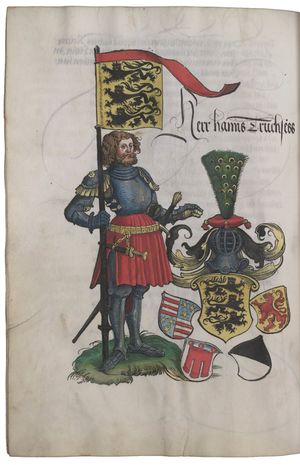 Herr hanns Truchsess